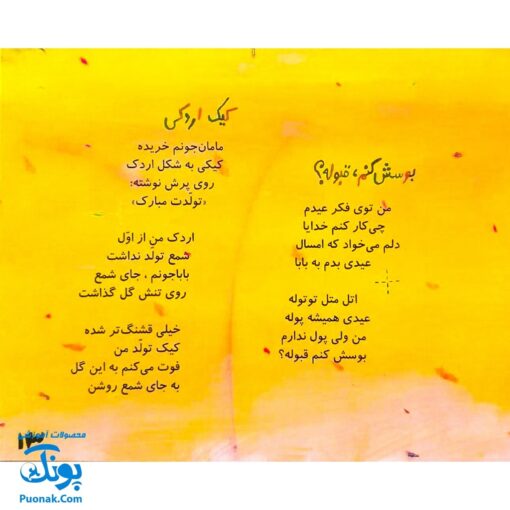 بوسش کنم، قبوله؟
من توی فکر عیدم
چی‌کار کنم خدایا
دلم می‌خواد که امسال
عیدی بدم به بابا
اتل متل توتوله
عیدی همیشه پوله
من ولی پول ندارم
بوسش کنم قبوله؟
کیک اردکی
مامان‌جونم خریده
کیکی به شکل اردک
روی پرش نوشته:
«تولّدت مبارک»
اردک من از اوّل
شمع تولّد نداشت
باباجونم ، جای شمع
روی تنش گل گذاشت
خیلی قشنگ‌تر شده
کیک تولّد من
فوت می‌کنم به این گل
به جای شمع روشن
محصولات
پونک
Puonak.Com